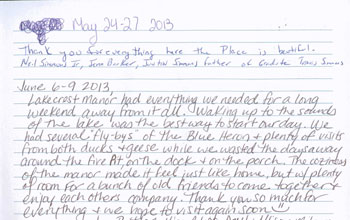 May 24-27 2013
Thank you for everything here the Place is beatiful.
Neil Simmons Jr, Jenn Barker, Justin Simmons father of Travis Simmons
June 6-9 2013
Lakecrest Manor had everything we needed for a long
weekend away from it all. Waking up to the sounds
of the lake was the best way to start our day. We
had several "fly-bys" of the Blue Heron & plenty of visits
from both ducks & geese while we wasted the days away
around the fire pit, on the dock & on the porch. The coziness
of the manor made it feel just like home, but w/ plenty
of room for a bunch of old friends to come together &
enjoy each others company. Thank you so much for
everything & we hope to visit again soon